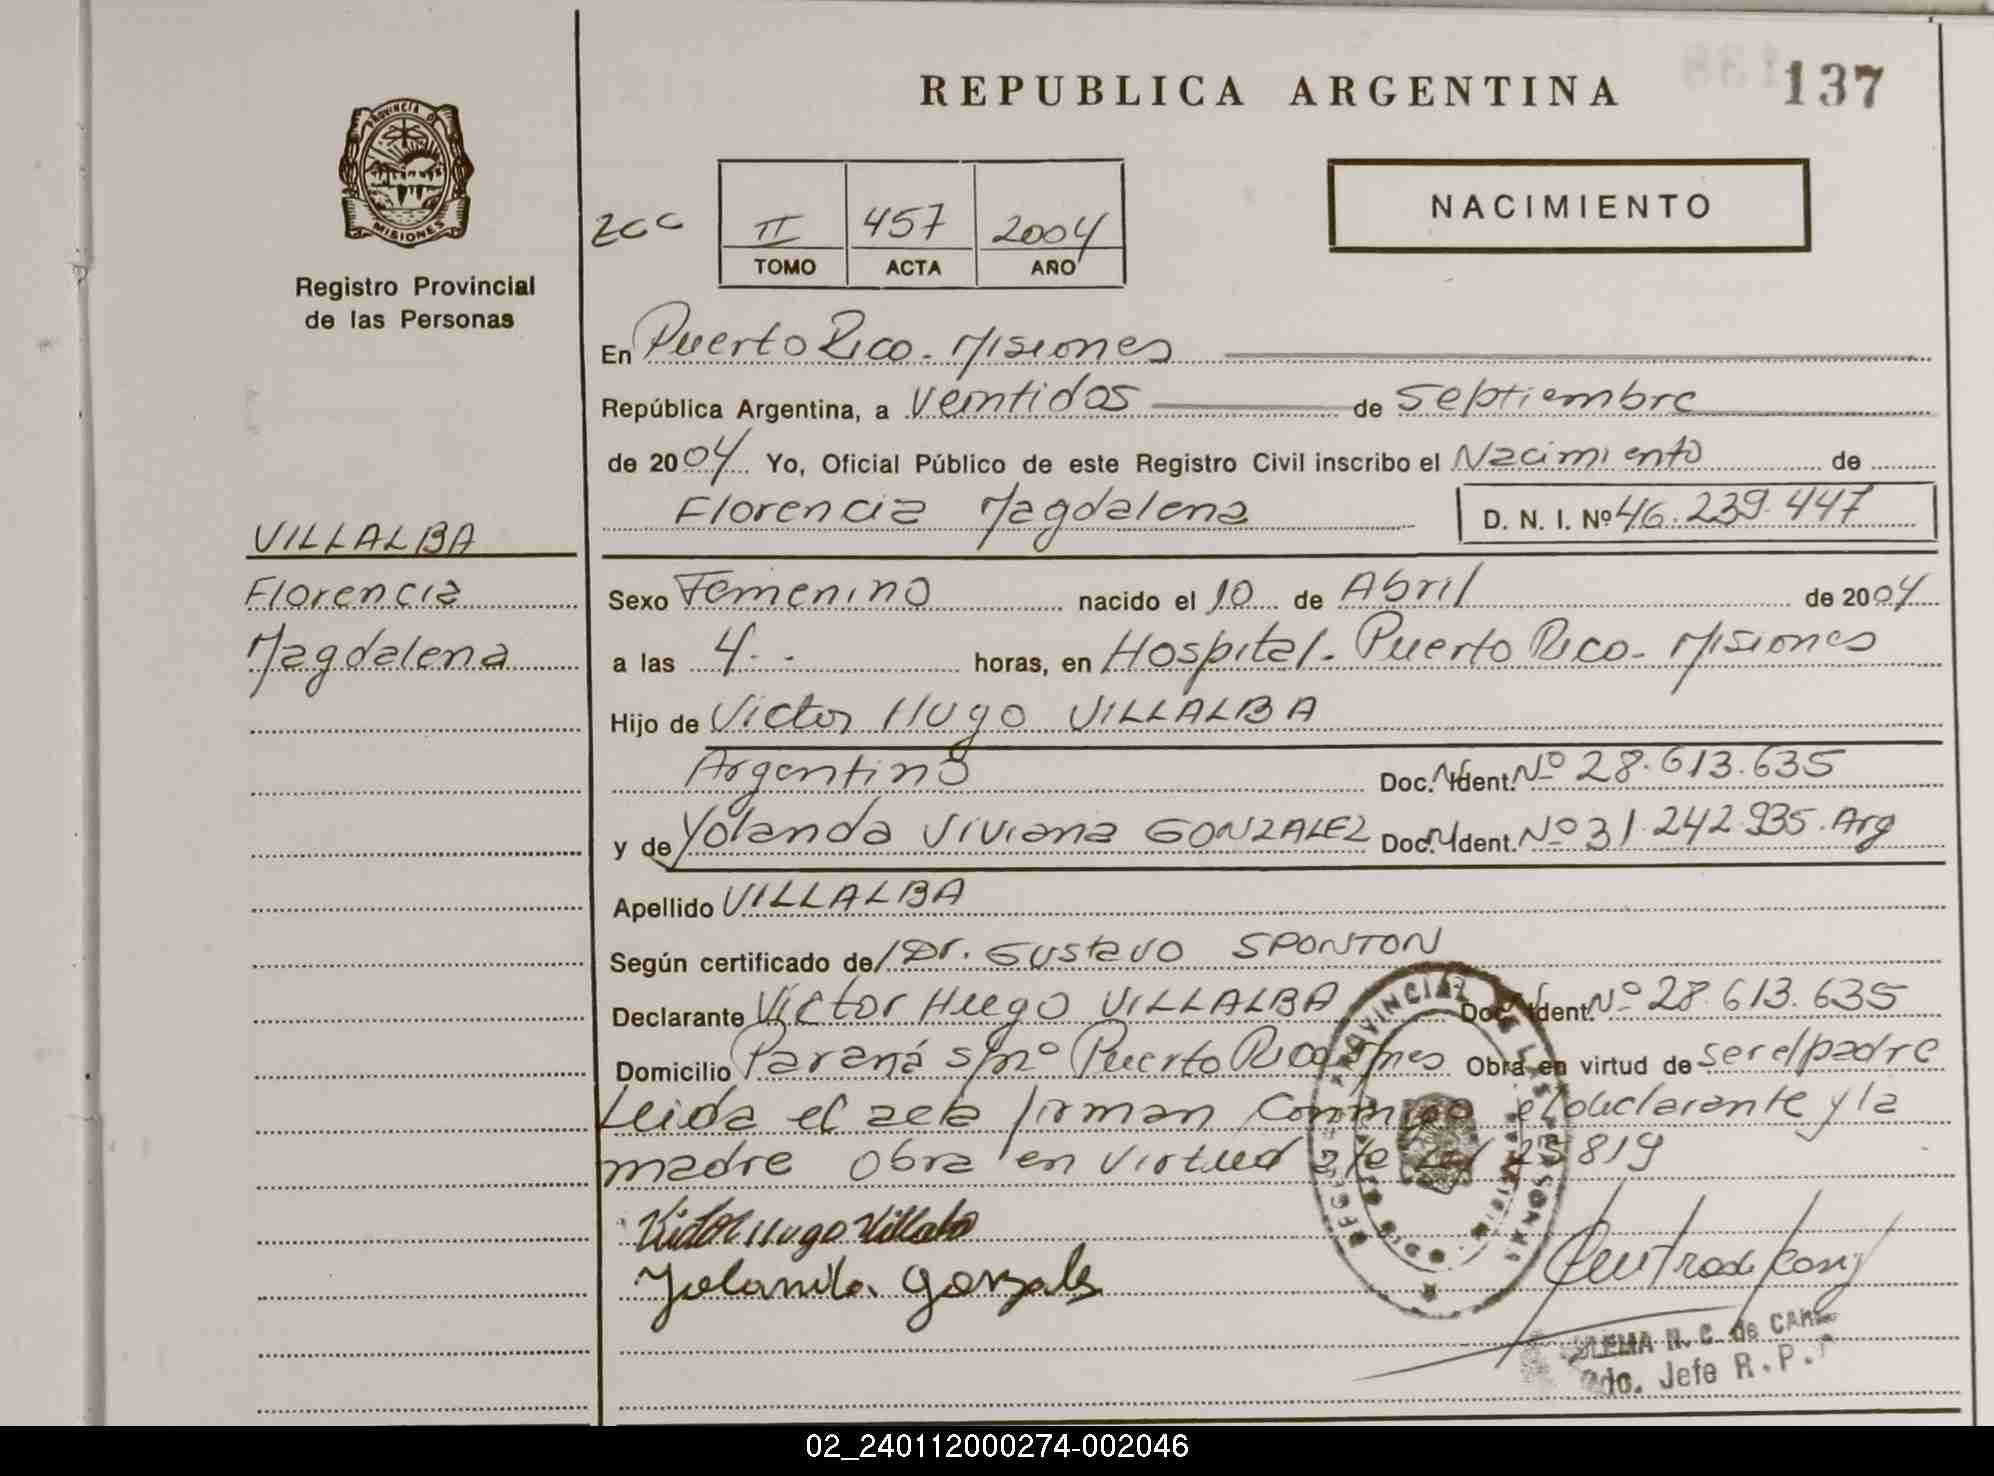 REPUBLICA ARGENTINA
137
PROVINCIA DE
MISIONES
Registro Provincial
de las Personas
II 457 2004
TOMO ACTA AÑO
NACIMIENTO
En Puerto Rico. Misiones
República Argentina, a Veintidos de Septiembre
de 2004 Yo, Oficial Público de este Registro Civil inscribo el Nacimiento de
Florencia Magdalena D. N. I. Nº 46.239.447
VILLALBA
Florencia
Magdalena
Sexo Femenino nacido el 10 de Abril de 2004
a las 4.. horas, en Hospital. Puerto Rico. Misiones
Hijo de Victor Hugo VILLALBA
Argentino Doc. Ident. Nº 28.613.635
y de Yolanda Viviana GONZALEZ Doc. Ident. Nº 31.242.935. Arg
Apellido VILLALBA
Según certificado de Dr. Gustavo SPONTON
Declarante Victor Hugo VILLALBA Doc. Ident. Nº 28.613.635
Domicilio Paraná s/nº Puerto Rico Mnes Obra en virtud de ser el padre
Leida el acta firman conmigo el declarante y la
madre Obra en virtud a la Ley 25819
Victor Hugo Villalba
Yolanda Gonzalez
N. C. de
Jefe R. P.
02_240112000274-002046